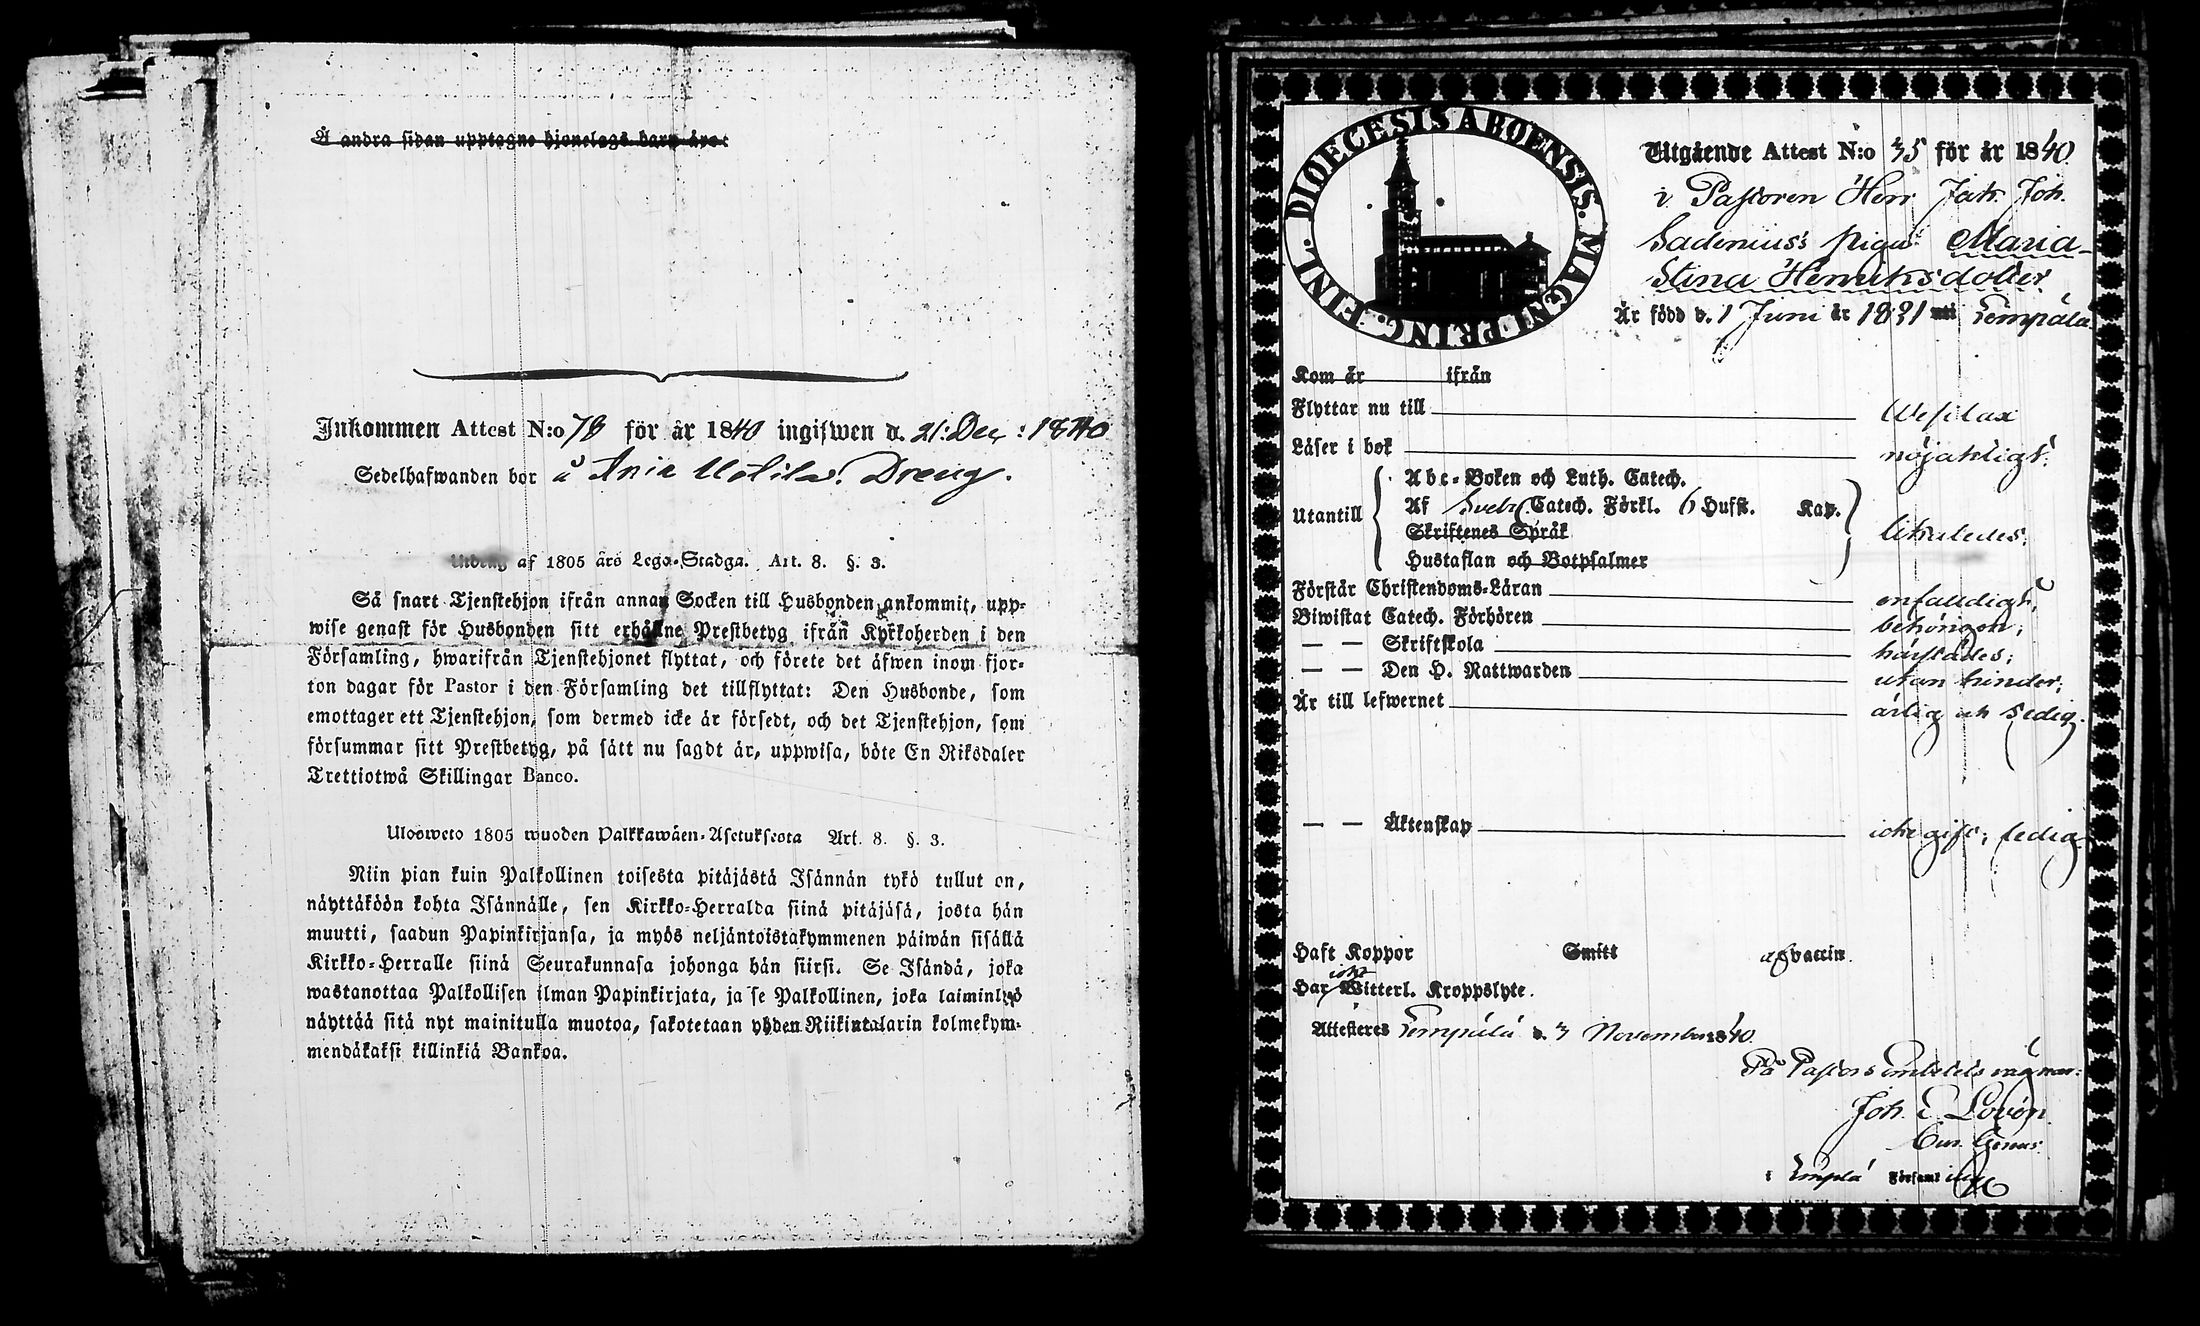 Å andra sidan upptagne hjonelags barn äro:
Inkommen Attest N:o 78 för år 1840 ingifwen d. 21: Dec: 1840
Sedelhafwanden bor å Ania Uotila. Dreng.
Utdrag af 1805 års Lego-Stadga. Art. 8. §. 3.
Så snart Tjenstehjon ifrån annan Socken till Husbonden ankommit, upp-
wise genast för Husbonden sitt erhållne Prestbetyg ifrån Kyrkoherden i den
Församling, hwarifrån Tjenstehjonet flyttat, och förete det äfwen inom fjor-
ton dagar för Pastor i den Församling det tillflyttat: Den Husbonde, som
emottager ett Tjenstehjon, som dermed icke är försedt, och det Tjenstehjon, som
försummar sitt Prestbetyg, på sätt nu sagdt är, uppwisa, böte En Riksdaler
Trettiotwå Skillingar Banco.
Ulosweto 1805 wuoden Palkkawäen-Asetuksesta Art. 8. §. 3.
Niin pian kuin Palkollinen toisesta pitäjästä Isännän tykö tullut on,
näyttäköön kohta Isännälle, sen Kirkko-Herralda siinä pitäjäsä, josta hän
muutti, saadun Papinkirjansa, ja myös neljäntoistakymmenen päiwän sisällä
Kirkko-Herralle siinä Seurakunnasa johonga hän siirsi. Se Isändä, joka
wastanottaa Palkollisen ilman Papinkirjata, ja se Palkollinen, joka laiminlyö
näyttää sitä nyt mainitulla muotoa, sakotetaan yhden Riikintalarin kolmekym-
mendäkaksi killinkiä Bankoa.
DIOECESIS ABOENSIS. MAGNI PRING. FINL.
Utgående Attest N:o 35 för år 1840.
i Pastoren Herr Jak. Joh.
Sadenius's piga Maria
Stina Henriksdotter
Är född d. 1 Juni år 1821 uti Lempälä
Kom år ifrån
Flyttar nu till Wesilax
Läser i bok nöjaktligt:
Abc-Boken och Luth. Catech.
Utantill Af Sveb. Catech. Förkl. 6 Hufst. Kap. likaledes;
Skriftenes Språk
Hustaflan och Botpsalmer
Förstår Christendoms-Läran enfalldigt;
Biwistat Catech. Förhören behörigen;
— — Skriftskola härstädes;
— — Den H. Nattwarden utan hinder;
Är till lefwernet ärlig och sedig.
— — Äktenskap icke gift; ledig
Haft Koppor Smitt af vaccin.
icke
Har Witterl. Kroppslyte.
Attesteres Lempälä d. 3 November 1840.
På Pastors Embetets vägnar:
Joh. E. Lovén.
i Lempälä Församling